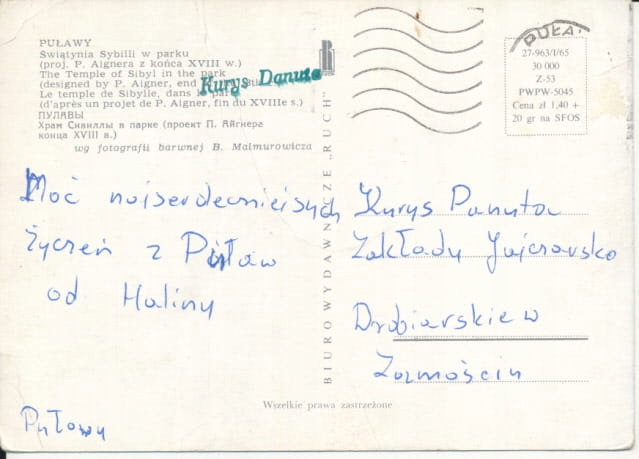 PUŁAWY
Świątynia Sybilli w parku
(proj. P. Aignera z końca XVIII w.)
The Temple of Sibyl in the park
(designed by P. Aigner, end
Le temple de Sibylle, dans le parc
(d'après un projet de P. Aigner, fin du XVIIIe s.)
ПУЛАВЫ
Храм Сивиллы в парке (проект П. Айгнера
конца XVIII в.)
wg fotografii barwnej B. Malmurowicza
Kurys Danuta
BIURO WYDAWNICZE „RUCH"
PUŁA
27-963/I/65
30 000
Z-53
PWPW-5045
Cena zł 1,40 +
20 gr na SFOS
Moć najserdeczniejszych
Życzeń z Puław
od Haliny
Puławy
Kurys Danuta
Zakłady Jajczarsko
Drobiarskie w
Zamościu
Wszelkie prawa zastrzeżone